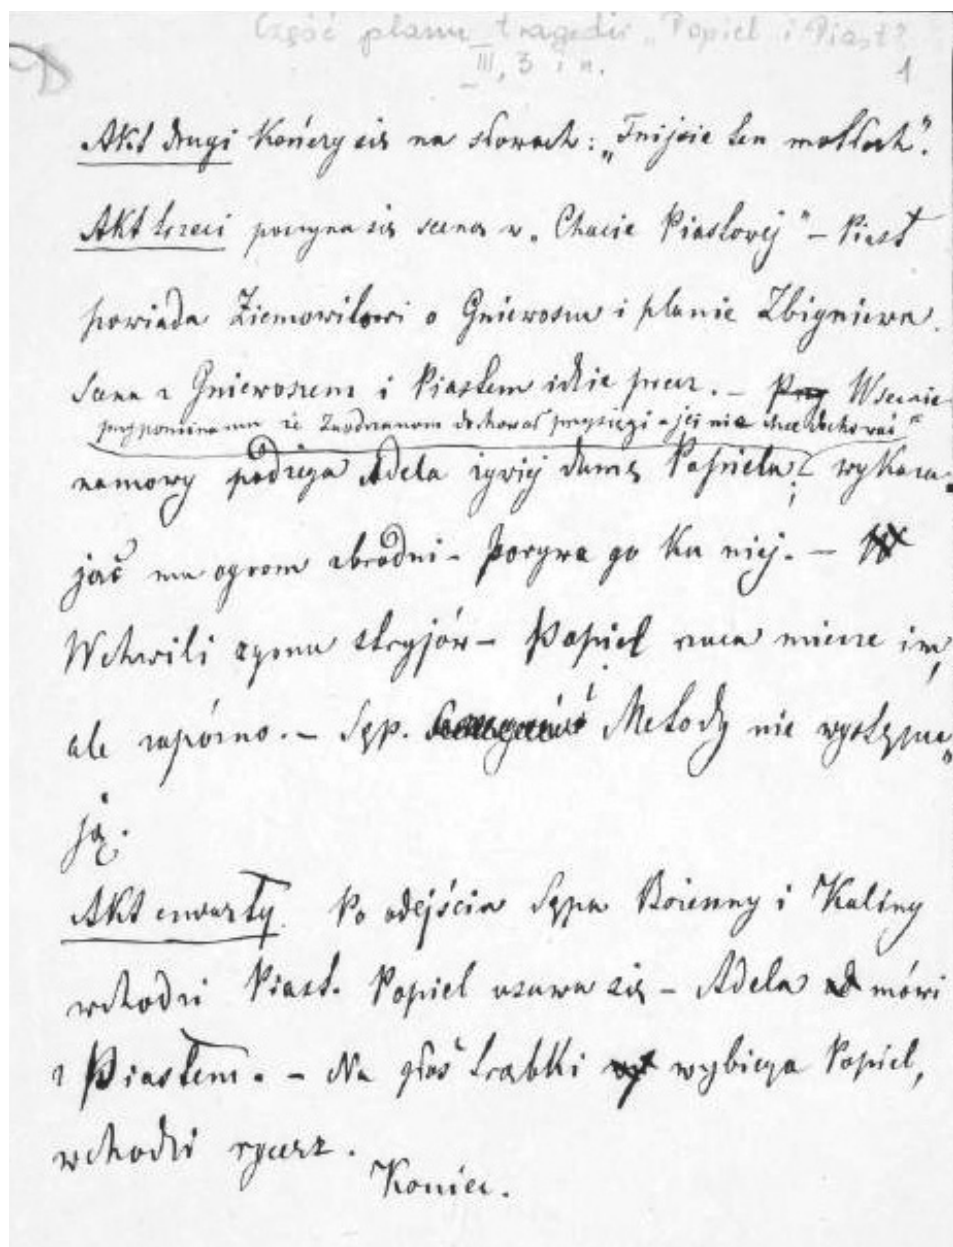 Część planu tragedii „Popiel i Piast"?
III, 3 i n.
1
Akt drugi Kończy się na słowach: „Tnijcie ten motłoch".
Akt trzeci poczyna się sceną w „Chacie Piastowej" – Piast
powiada Ziemowitowi o Gniewoszu i planie Zbigniewa.
Scena z Gniewoszem i Piastem idzie precz. – Przy W scenie
przypomina mu że Zaodrzanom dochował przysięgi a jej nie chce dochować
namowy podżega Adela żywiej dumę Popiela; wykazu-
jąc mu ogrom zbrodni – Porywa go Ku niej. –
W chwili zgonu stryjów – Popiel rzuca miecze im,
ale zapóźno. – Sęp. Metody nie występu„
ją.
Akt czwarty Po odejściu Sępa Bożenny i Kaliny
wchodzi Piast. Popiel usuwa się – Adela mówi
z Piastem. – Na głos trąbki wybiega Popiel,
wchodzi rycerz.
Koniec.